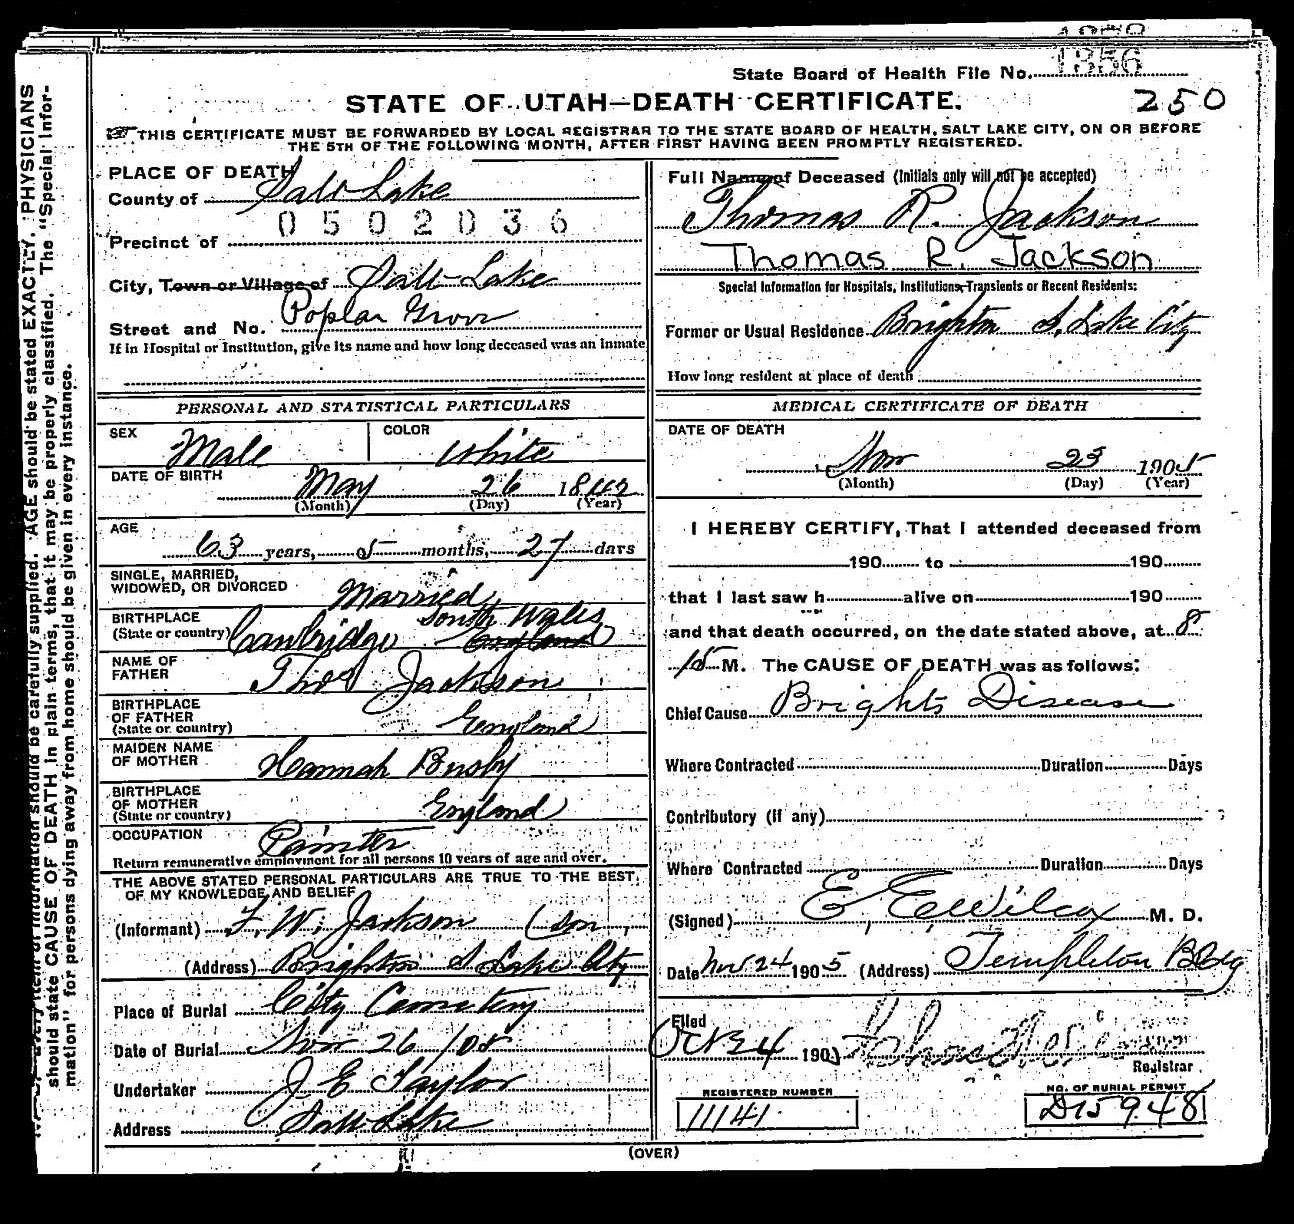 1856
State Board of Health File No.
STATE OF UTAH—DEATH CERTIFICATE.
250
THIS CERTIFICATE MUST BE FORWARDED BY LOCAL REGISTRAR TO THE STATE BOARD OF HEALTH, SALT LAKE CITY, ON OR BEFORE
THE 5TH OF THE FOLLOWING MONTH, AFTER FIRST HAVING BEEN PROMPTLY REGISTERED.
PLACE OF DEATH
County of Salt Lake
0502036
Precinct of
City, Town or Village of Salt Lake
Street and No. Poplar Grove
If in Hospital or Institution, give its name and how long deceased was an inmate
PERSONAL AND STATISTICAL PARTICULARS
SEX Male COLOR White
DATE OF BIRTH May 26 1842
(Month) (Day) (Year)
AGE 63 years, 5 months, 27 days
SINGLE, MARRIED,
WIDOWED, OR DIVORCED Married
BIRTHPLACE South Wales
(State or country) Cawbridge England
NAME OF
FATHER Thos Jackson
BIRTHPLACE
OF FATHER
(State or country) England
MAIDEN NAME
OF MOTHER Hannah Busby
BIRTHPLACE
OF MOTHER
(State or country) England
OCCUPATION Painter
Return remunerative employment for all persons 10 years of age and over.
THE ABOVE STATED PERSONAL PARTICULARS ARE TRUE TO THE BEST
OF MY KNOWLEDGE AND BELIEF
(Informant) F. W. Jackson (son
(Address) Brighton S Lake City
Place of Burial City Cemetery
Date of Burial Nov 26 /05
Undertaker J E Taylor
Address Salt Lake
Full Name of Deceased (Initials only will not be accepted)
Thomas R. Jackson
Thomas R. Jackson
Special Information for Hospitals, Institutions, Transients or Recent Residents:
Former or Usual Residence Brighton S. Lake City
How long resident at place of death
MEDICAL CERTIFICATE OF DEATH
DATE OF DEATH
Nov 23 1905
(Month) (Day) (Year)
I HEREBY CERTIFY, That I attended deceased from
190 to 190
that I last saw h alive on 190
and that death occurred, on the date stated above, at 8
15 M. The CAUSE OF DEATH was as follows:
Chief Cause Brights Disease
Where Contracted Duration Days
Contributory (if any)
Where Contracted Duration Days
(Signed) E. E. Wilcox M. D.
Date Nov 24 1905 (Address) Templeton Bldg
Filed
190
Registrar
REGISTERED NUMBER
11141
NO. OF BURIAL PERMIT
D15948
(OVER)
should be carefully supplied. AGE should be stated EXACTLY. PHYSICIANS
should state CAUSE OF DEATH in plain terms, that it may be properly classified. The "Special Infor-
mation" for persons dying away from home should be given in every instance.